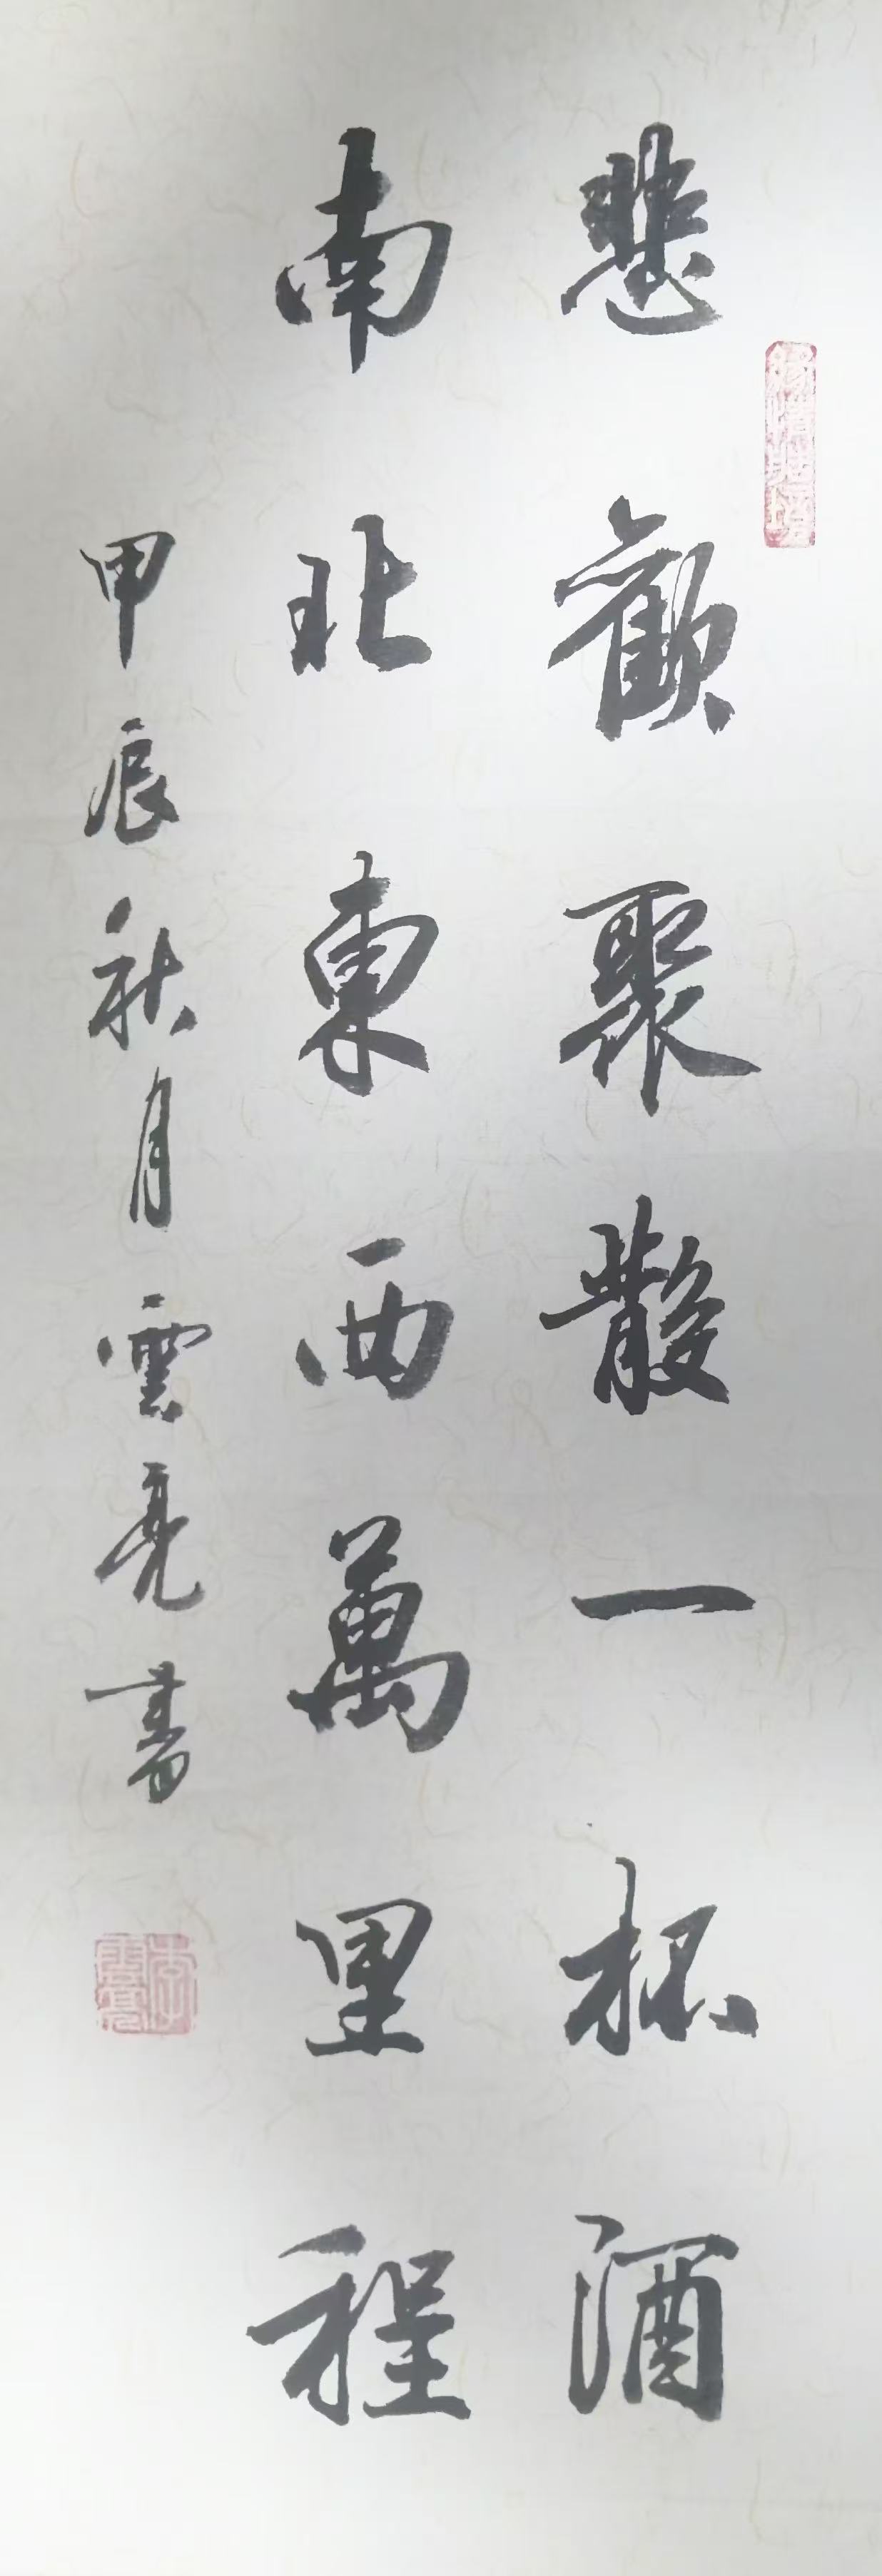 悲歡聚散一杯酒
南北東西萬里程
甲辰秋月雲亮書
李雲亮